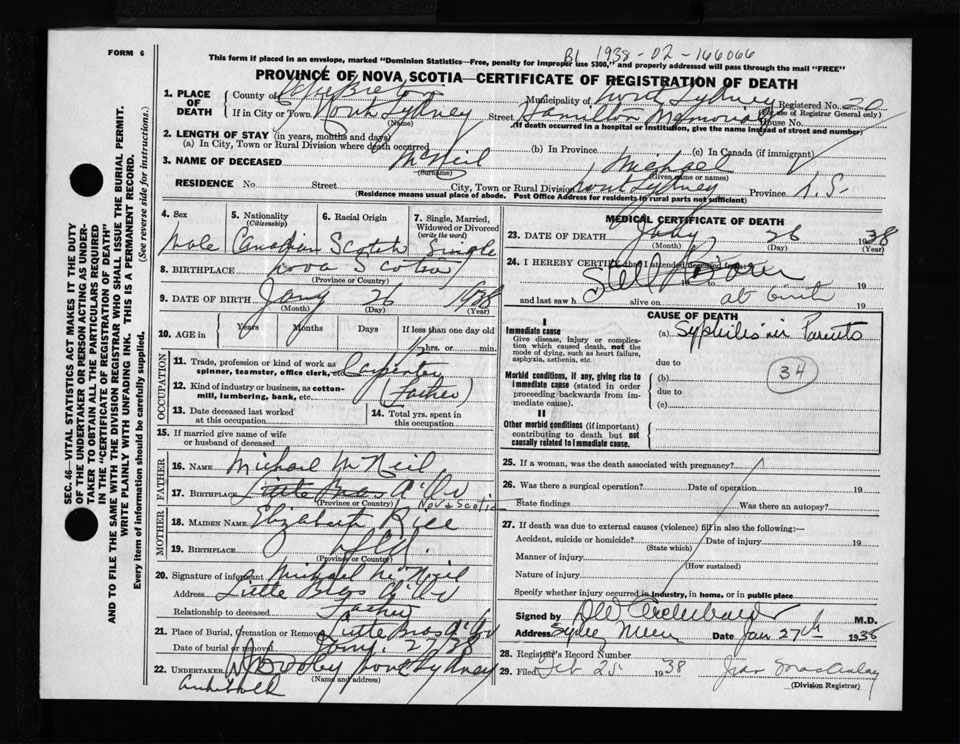 FORM 6
This form if placed in an envelope, marked "Dominion Statistics—Free, penalty for improper use $300," and properly addressed will pass through the mail "FREE"
B1 1938-02-166066
PROVINCE OF NOVA SCOTIA—CERTIFICATE OF REGISTRATION OF DEATH
1. PLACE OF DEATH County of Cape Breton Municipality of North Sydney Registered No. 20
(For use of Registrar General only)
If in City or Town North Sydney (Name) Street Hamilton Memorial House No.
(If death occurred in a hospital or institution, give the name instead of street and number)
2. LENGTH OF STAY (in years, months and days)
(a) In City, Town or Rural Division where death occurred (b) In Province (c) In Canada (if immigrant)
3. NAME OF DECEASED McNeil (Surname) Michael (Given name or names)
RESIDENCE No. Street City, Town or Rural Division North Sydney Province N.S.
(Residence means usual place of abode. Post Office Address for residents in rural parts not sufficient)
4. Sex Male
5. Nationality (Citizenship) Canadian
6. Racial Origin Scotch
7. Single, Married, Widowed or Divorced (write the word) Single
8. BIRTHPLACE Nova Scotia (Province or Country)
9. DATE OF BIRTH Jany (Month) 26 (Day) 1938 (Year)
10. AGE in Years Months Days If less than one day old hrs. or min.
OCCUPATION
11. Trade, profession or kind of work as spinner, teamster, office clerk, etc. Carpenter
12. Kind of industry or business, as cotton-mill, lumbering, bank, etc. (Father)
13. Date deceased last worked at this occupation
14. Total yrs. spent in this occupation
15. If married give name of wife or husband of deceased
FATHER
16. NAME Michael McNeil
17. BIRTHPLACE Little Bras d'Or
(Province or Country) Nova Scotia
MOTHER
18. MAIDEN NAME Elizabeth Rice
19. BIRTHPLACE
(Province or Country)
20. Signature of informant Michael McNeil
Address Little Bras d'Or
Relationship to deceased Father
21. Place of Burial, Cremation or Removal Little Bras d'Or
Date of burial or removal Jany.
22. UNDERTAKER North Sydney
(Name and address)
MEDICAL CERTIFICATE OF DEATH
23. DATE OF DEATH Jany (Month) 26 (Day) 1938 (Year)
24. I HEREBY CERTIFY that I attended deceased from:
Still Born
19 to 19
and last saw h alive on at birth 19
CAUSE OF DEATH
I
Immediate cause
Give disease, injury or complication which caused death, not the mode of dying, such as heart failure, asphyxia, asthenia, etc.
(a) Syphilis in Parents
due to
Morbid conditions, if any, giving rise to immediate cause (stated in order proceeding backwards from immediate cause).
(b)
due to
(c)
34
II
Other morbid conditions (if important) contributing to death but not causally related to immediate cause.
25. If a woman, was the death associated with pregnancy?
26. Was there a surgical operation? Date of operation 19
State findings Was there an autopsy?
27. If death was due to external causes (violence) fill in also the following:—
Accident, suicide or homicide? (State which) Date of injury 19
Manner of injury (How sustained)
Nature of injury
Specify whether injury occurred in industry, in home, or in public place
Signed by Archibald M.D.
Address Sydney Mines Date Jan 27th 1938
28. Registrar's Record Number
29. Filed Feb 25 1938
(Division Registrar)
SEC. 46—VITAL STATISTICS ACT MAKES IT THE DUTY OF THE UNDERTAKER OR PERSON ACTING AS UNDERTAKER TO OBTAIN ALL THE PARTICULARS REQUIRED IN THE "CERTIFICATE OF REGISTRATION OF DEATH" AND TO FILE THE SAME WITH THE DIVISION REGISTRAR WHO SHALL ISSUE THE BURIAL PERMIT.
WRITE PLAINLY WITH UNFADING INK. THIS IS A PERMANENT RECORD.
Every item of information should be carefully supplied. (See reverse side for instructions.)